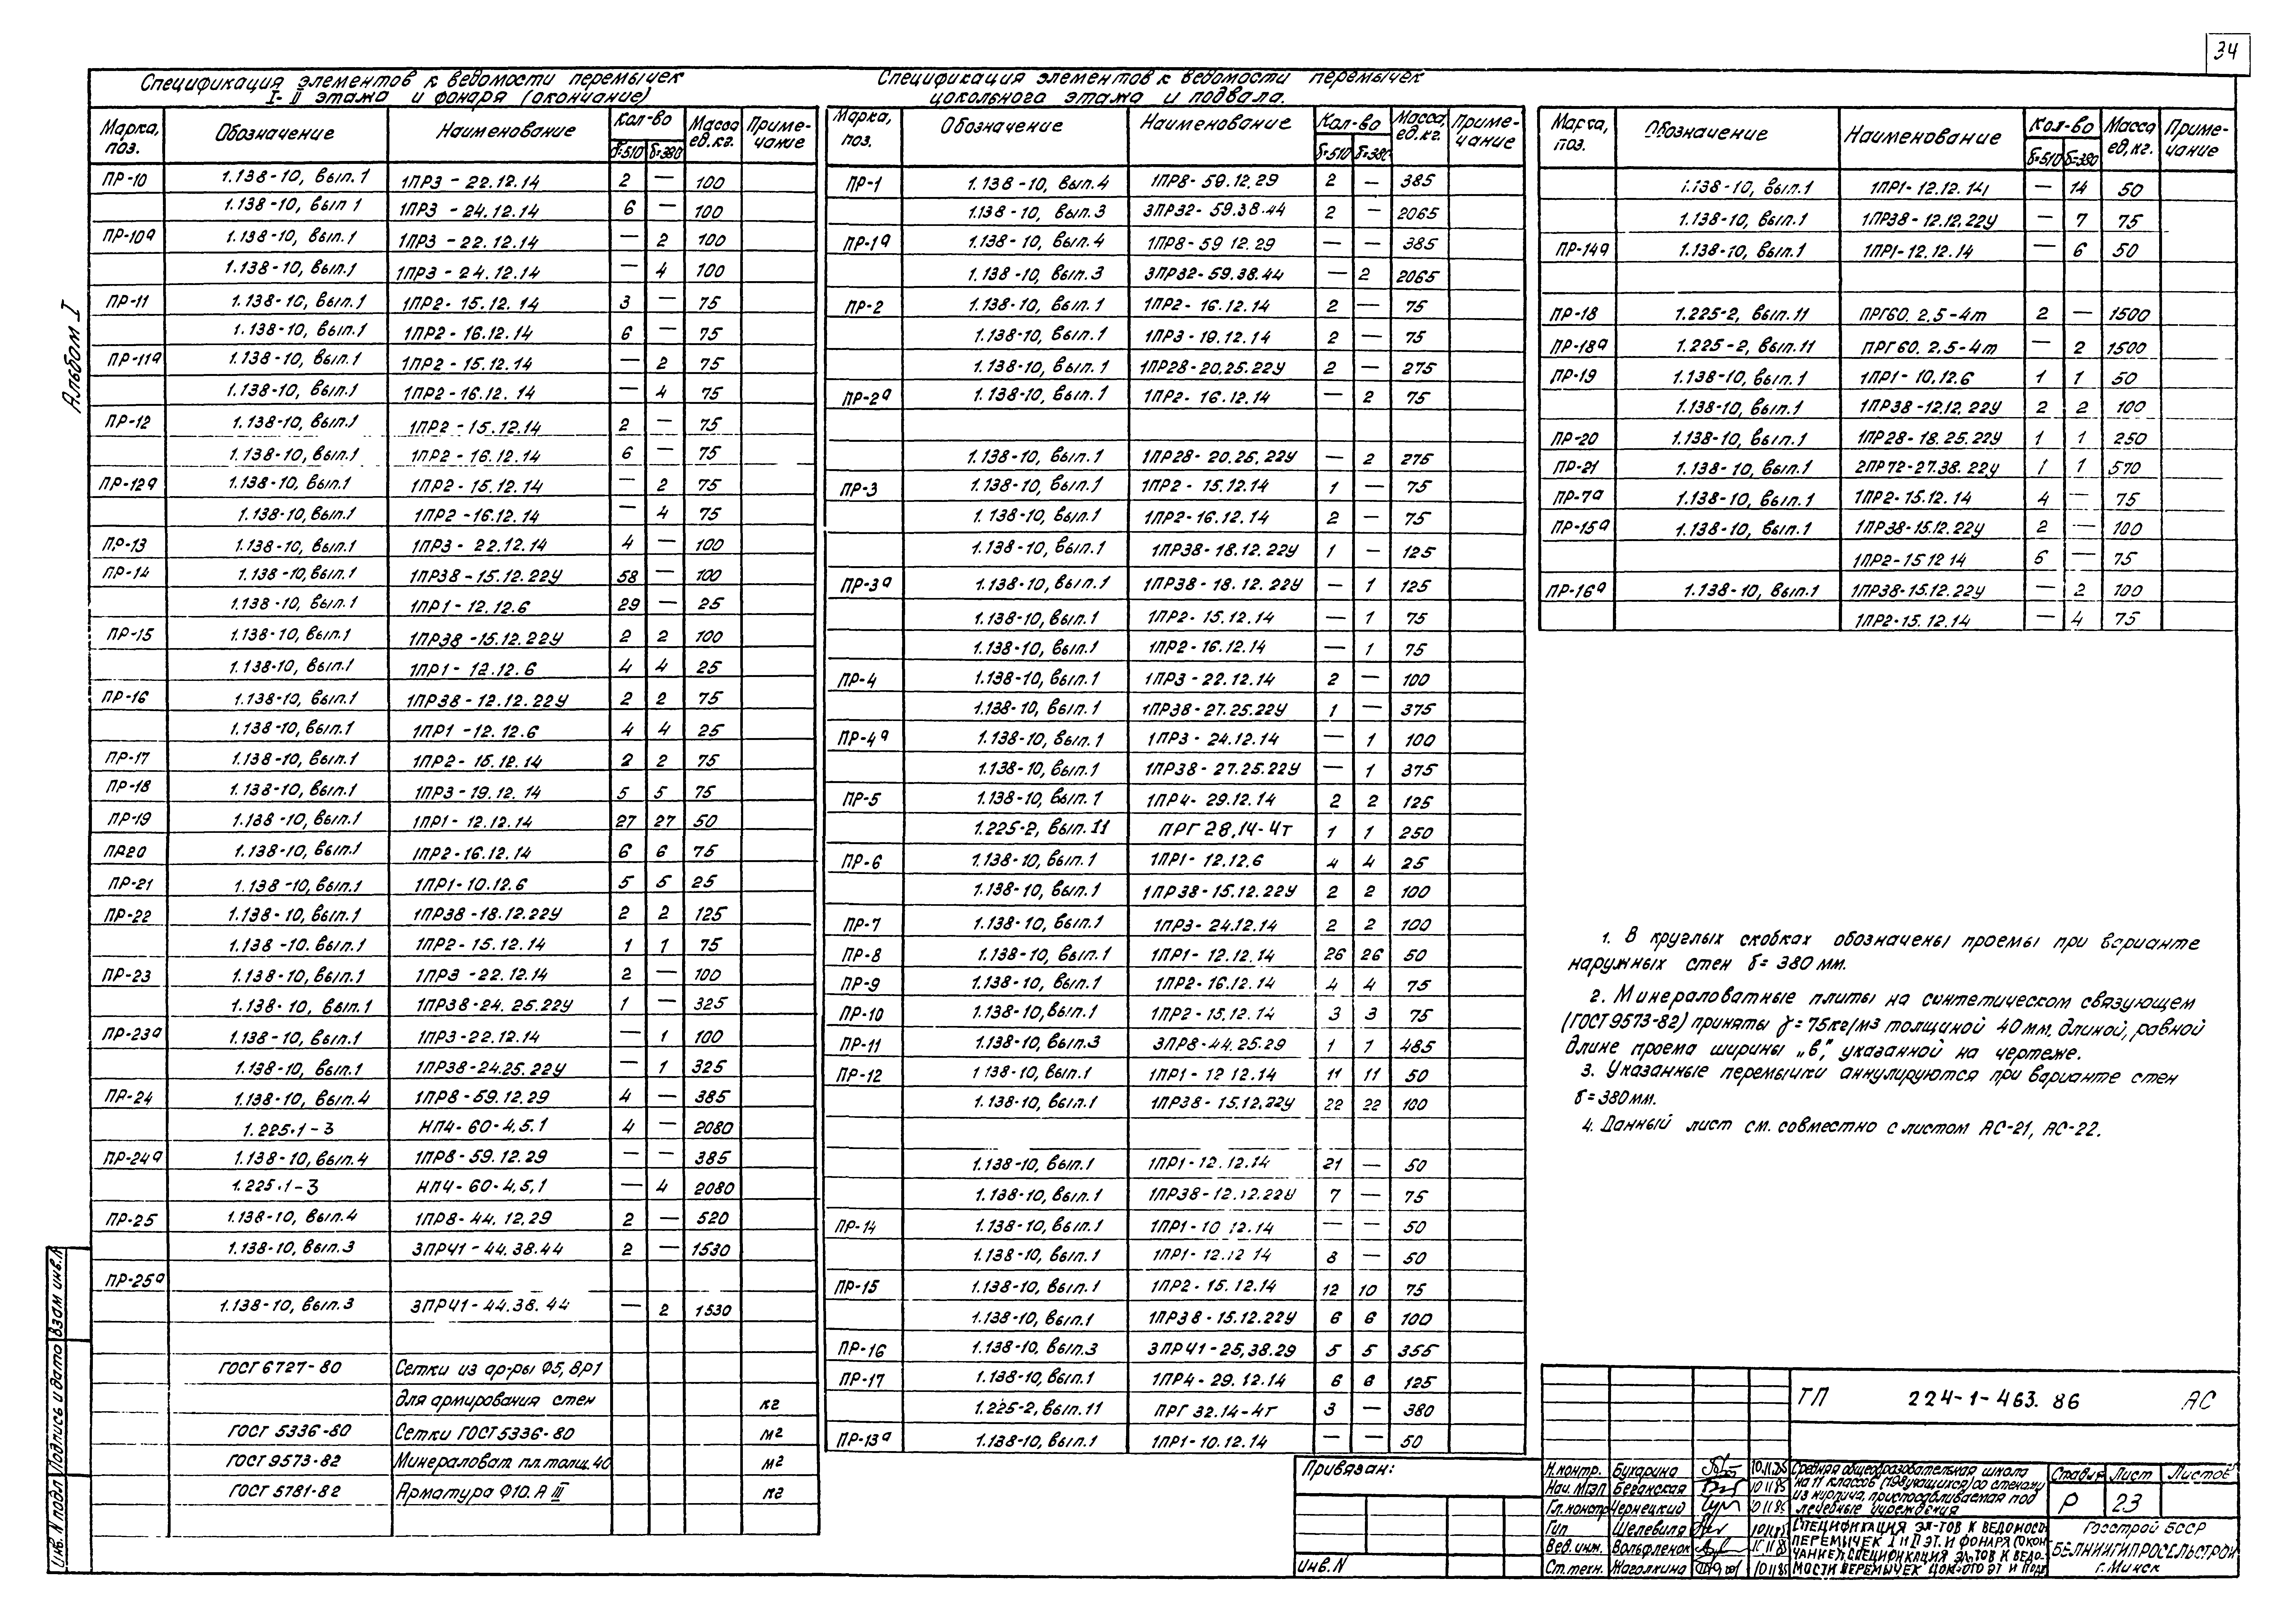 34
Альбом I
Спецификация элементов к ведомости перемычек
I-II этажа и фонаря (окончание)
Марка, поз. Обозначение Наименование Кол-во Масса ед.кг. Приме-чание
δ=510 δ=380
ПР-10 1.138-10, вып.1 1ПР3-22.12.14 2 — 100
1.138-10, вып 1 1ПР3-24.12.14 6 — 100
ПР-10а 1.138-10, вып.1 1ПР3-22.12.14 — 2 100
1.138-10, вып.1 1ПР3-24.12.14 — 4 100
ПР-11 1.138-10, вып.1 1ПР2-15.12.14 3 — 75
1.138-10, вып.1 1ПР2-16.12.14 6 — 75
ПР-11а 1.138-10, вып.1 1ПР2-15.12.14 — 2 75
1.138-10, вып.1 1ПР2-16.12.14 — 4 75
ПР-12 1.138-10, вып.1 1ПР2-15.12.14 2 — 75
1.138-10, вып.1 1ПР2-16.12.14 6 — 75
ПР-12а 1.138-10, вып.1 1ПР2-15.12.14 — 2 75
1.138-10, вып.1 1ПР2-16.12.14 — 4 75
ПР-13 1.138-10, вып.1 1ПР3-22.12.14 4 — 100
ПР-14 1.138-10, вып.1 1ПР38-15.12.22У 58 — 100
1.138-10, вып.1 1ПР1-12.12.6 29 — 25
ПР-15 1.138-10, вып.1 1ПР38-15.12.22У 2 2 100
1.138-10, вып.1 1ПР1-12.12.6 4 4 25
ПР-16 1.138-10, вып.1 1ПР38-12.12.22У 2 2 75
1.138-10, вып.1 1ПР1-12.12.6 4 4 25
ПР-17 1.138-10, вып.1 1ПР2-15.12.14 2 2 75
ПР-18 1.138-10, вып.1 1ПР3-19.12.14 5 5 75
ПР-19 1.138-10, вып.1 1ПР1-12.12.14 27 27 50
ПР20 1.138-10, вып.1 1ПР2-16.12.14 6 6 75
ПР-21 1.138-10, вып.1 1ПР1-10.12.6 5 5 25
ПР-22 1.138-10, вып.1 1ПР38-18.12.22У 2 2 125
1.138-10. вып.1 1ПР2-15.12.14 1 1 75
ПР-23 1.138-10, вып.1 1ПР3-22.12.14 2 — 100
1.138-10, вып.1 1ПР38-24.25.22У 1 — 325
ПР-23а 1.138-10, вып.1 1ПР3-22.12.14 — 1 100
1.138-10, вып.1 1ПР38-24.25.22У — 1 325
ПР-24 1.138-10, вып.4 1ПР8-59.12.29 4 — 385
1.225.1-3 НП4-60-4,5.1 4 — 2080
ПР-24а 1.138-10, вып.4 1ПР8-59.12.29 — — 385
1.225.1-3 НП4-60-4,5,1 — 4 2080
ПР-25 1.138-10, вып.4 1ПР8-44.12.29 2 — 520
1.138-10, вып.3 3ПР41-44.38.44 2 — 1530
ПР-25а
1.138-10, вып.3 3ПР41-44.38.44 — 2 1530
ГОСТ 6727-80 Сетки из ар-ры Ф5,ВР1
для армирования стен кг
ГОСТ 5336-80 Сетки ГОСТ5336-80 м2
ГОСТ 9573-82 Минераловат. пл.толщ.40 м2
ГОСТ 5781-82 Арматура Ф10.А III кг
Спецификация элементов к ведомости перемычек
цокольного этажа и подвала.
Марка, поз. Обозначение Наименование Кол-во Масса ед.кг. Приме-чание
δ=510 δ=380
ПР-1 1.138-10, вып.4 1ПР8-59.12.29 2 — 385
1.138-10, вып.3 3ПР32-59.38.44 2 — 2065
ПР-1а 1.138-10, вып.4 1ПР8-59 12.29 — — 385
1.138-10, вып.3 3ПР32-59.38.44 — 2 2065
ПР-2 1.138-10, вып.1 1ПР2-16.12.14 2 — 75
1.138-10, вып.1 1ПР3-19.12.14 2 — 75
1.138-10, вып.1 1ПР28-20.25.22У 2 — 275
ПР-2а 1.138-10, вып.1 1ПР2-16.12.14 — 2 75
1.138-10, вып.1 1ПР28-20.25.22У — 2 275
ПР-3 1.138-10, вып.1 1ПР2-15.12.14 1 — 75
1.138-10, вып.1 1ПР2-16.12.14 2 — 75
1.138-10, вып.1 1ПР38-18.12.22У 1 — 125
ПР-3а 1.138-10, вып.1 1ПР38-18.12.22У — 1 125
1.138-10, вып.1 1ПР2-15.12.14 — 1 75
1.138-10, вып.1 1ПР2-16.12.14 — 1 75
ПР-4 1.138-10, вып.1 1ПР3-22.12.14 2 — 100
1.138-10, вып.1 1ПР38-27.25.22У 1 — 375
ПР-4а 1.138-10, вып.1 1ПР3-24.12.14 — 1 100
1.138-10, вып.1 1ПР38-27.25.22У — 1 375
ПР-5 1.138-10, вып.1 1ПР4-29.12.14 2 2 125
1.225-2, вып.11 ПРГ 28.14-4т 1 1 250
ПР-6 1.138-10, вып.1 1ПР1-12.12.6 4 4 25
1.138-10, вып.1 1ПР38-15.12.22У 2 2 100
ПР-7 1.138-10, вып.1 1ПР3-24.12.14 2 2 100
ПР-8 1.138-10, вып.1 1ПР1-12.12.14 26 26 50
ПР-9 1.138-10, вып.1 1ПР2-16.12.14 4 4 75
ПР-10 1.138-10, вып.1 1ПР2-15.12.14 3 3 75
ПР-11 1.138-10, вып.3 3ПР8-44.25.29 1 1 485
ПР-12 1.138-10, вып.1 1ПР1-12 12.14 11 11 50
1.138-10, вып.1 1ПР38-15.12.22У 22 22 100
1.138-10, вып.1 1ПР1-12.12.14 21 — 50
1.138-10, вып.1 1ПР38-12.12.22У 7 — 75
ПР-14 1.138-10, вып.1 1ПР1-10 12.14 — — 50
1.138-10, вып.1 1ПР1-12.12 14 8 — 50
ПР-15 1.138-10, вып.1 1ПР2-15.12.14 12 10 75
1.138-10, вып.1 1ПР38-15.12.22У 6 6 100
ПР-16 1.138-10, вып.3 3ПР41-25,38.29 5 5 355
ПР-17 1.138-10, вып.1 1ПР4-29.12.14 6 6 125
1.225-2, вып.11 ПРГ 32.14-4т 3 — 380
ПР-13а 1.138-10, вып.1 1ПР1-10.12.14 — — 50
Марка, поз. Обозначение Наименование Кол-во Масса ед,кг. Приме-чание
δ=510 δ=380
1.138-10, вып.1 1ПР1-12.12.14 — 14 50
1.138-10, вып.1 1ПР38-12.12.22У — 7 75
ПР-14а 1.138-10, вып.1 1ПР1-12.12.14 — 6 50
ПР-18 1.225-2, вып.11 ПРГ60.2.5-4т 2 — 1500
ПР-18а 1.225-2, вып.11 ПРГ60.2.5-4т — 2 1500
ПР-19 1.138-10, вып.1 1ПР1-10.12.6 1 1 50
1.138-10, вып.1 1ПР38-12.12.22У 2 2 100
ПР-20 1.138-10, вып.1 1ПР28-18.25.22У 1 1 250
ПР-21 1.138-10, вып.1 2ПР72-27.38.22у 1 1 570
ПР-7а 1.138-10, вып.1 1ПР2-15.12.14 4 — 75
ПР-15а 1.138-10, вып.1 1ПР38-15.12.22У 2 — 100
1ПР2-15 12 14 6 — 75
ПР-16а 1.138-10, вып.1 1ПР38-15.12.22У — 2 100
1ПР2-15.12.14 — 4 75
1. В круглых скобках обозначены проемы при варианте
наружных стен δ=380 мм.
2. Минераловатные плиты на синтетическом связующем
(ГОСТ 9573-82) приняты γ=75кг/м3 толщиной 40мм, длиной, равной
длине проема ширины „в", указанной на чертеже.
3. Указанные перемычки аннулируются при варианте стен
δ=380мм.
4. Данный лист см. совместно с листом АС-21, АС-22.
ТП 224-1-463.86 АС
Привязан:
Инв.N
Н.контр. Бухарина 10.11.85
Нач. МТЭП Беганская 10 11 85
Гл.констр Чернецкий
Гип Шелевиля 10.11.85
Вед. инж. Вольфленок
Ст.техн. Жаголкина 10 11 85
Средняя общеобразовательная школа
на 11 классов /уча­щихся/ со стенами
из кирпича, приспосабливаемая под
лечебные учреждения
Стадия Лист Листов
Р 23
СПЕЦИФИКАЦИЯ ЭЛ-ТОВ К ВЕДОМОСТИ
ПЕРЕМЫЧЕК I И II ЭТ. И ФОНАРЯ (ОКОН-
ЧАНИЕ). СПЕЦИФИКАЦИЯ ЭЛ-ТОВ К ВЕДО-
МОСТИ ПЕРЕМЫЧЕК ЦОК-ОГО ЭТ И ПОДВ
Госстрой БССР
БЕЛНИИГИПРОСЕЛЬСТРОЙ
г. Минск
Инв. N подл. Подпись и дата Взам инв.N